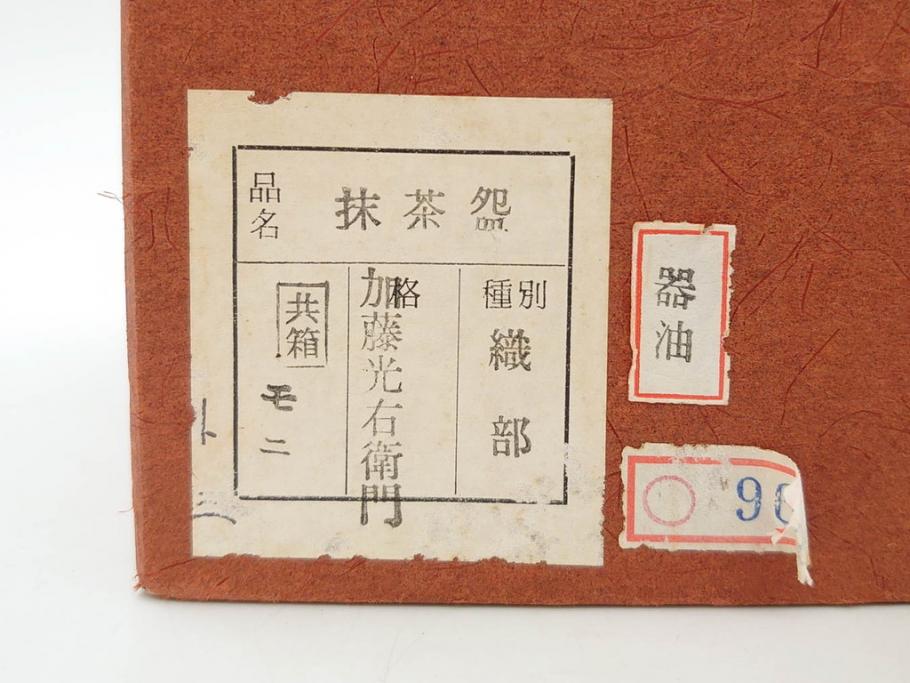 品名
抹茶盌
種別
織部
格
加藤光右衛門
共箱
モニ
器油
9